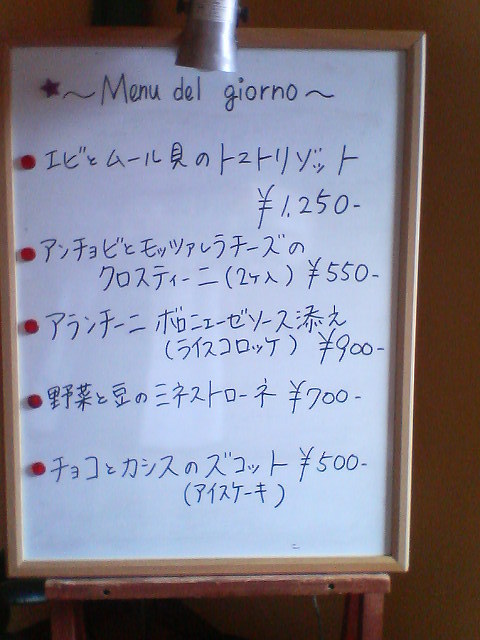 ★～Menu del giorno～
エビとムール貝のトマトリゾット
¥1,250-
アンチョビとモッツァレラチーズの
クロスティーニ(2ケ入) ¥550-
アランチーニ ボロニェーゼソース添え
(ライスコロッケ) ¥900-
野菜と豆のミネストローネ ¥700-
チョコとカシスのズコット ¥500-
(アイスケーキ)